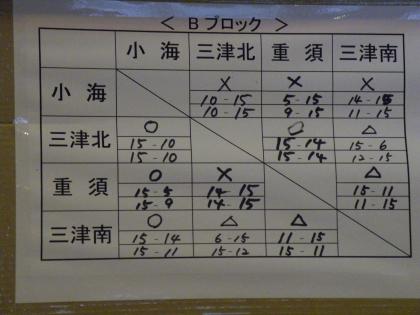 ＜ Bブロック ＞
小海 三津北 重須 三津南
小海 × × ×
10-15 5-15 14-15
10-15 9-15 11-15
三津北 ○ ○ △
15-10 15-14 15-6
15-10 15-14 12-15
重須 ○ × △
15-5 14-15 15-11
15-9 14-15 11-15
三津南 ○ △ △
15-14 6-15 11-15
15-11 15-12 15-11